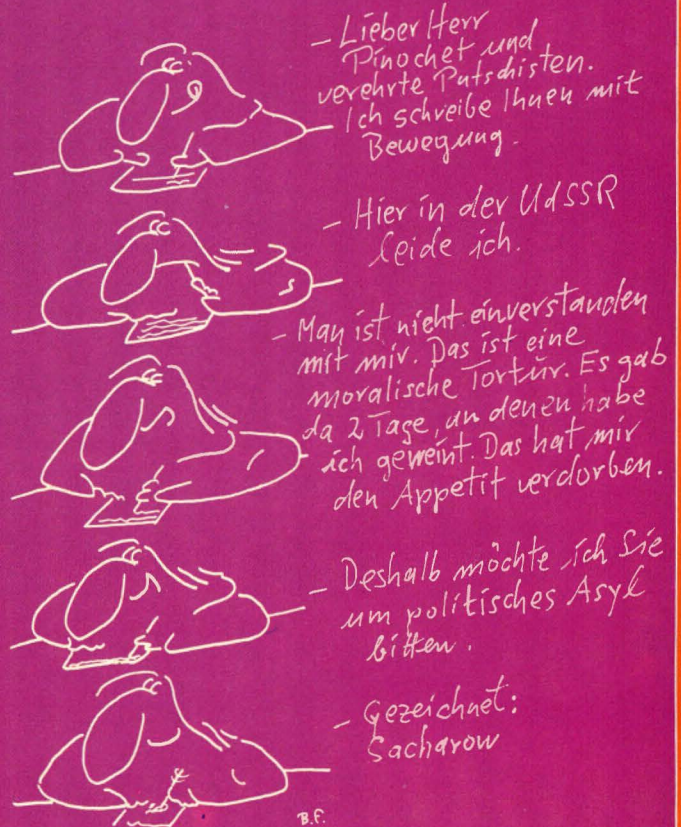 – Lieber Herr
Pinochet und
verehrte Putschisten.
Ich schreibe Ihnen mit
Bewegung.
– Hier in der UdSSR
leide ich.
– Man ist nicht einverstanden
mit mir. Das ist eine
moralische Tortur. Es gab
da 2 Tage, an denen habe
ich geweint. Das hat mir
den Appetit verdorben.
– Deshalb möchte ich Sie
um politisches Asyl
bitten.
– Gezeichnet:
Sacharow
B.F.